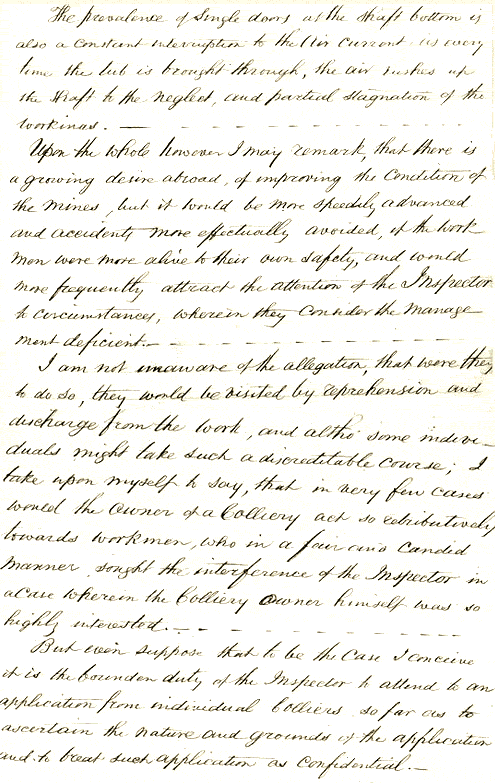 The prevalence of Single doors at the Shaft bottom is
also a Constant interruption to the Air Current, as every
time the tub is brought through, the air rushes up
the Shaft to the neglect, and partial Stagnation of the
workings. —
Upon the whole however I may remark, that there is
a growing desire abroad, of improving the Condition of
the Mines, but it would be more speedily advanced
and accidents more effectually avoided, if the Work
Men were more alive to their own Safety, and would
more frequently attract the attention of the Inspector
to circumstances, wherein they Consider the Manage
ment deficient. —
I am not unaware of the allegation, that were they
to do so, they would be visited by reprehension and
discharge from the work, and altho' some indivi-
duals might take such a discreditable course; I
take upon myself to say, that in very few cases
would the Owner of a Colliery act so retributively
towards workmen, who in a fair and Candid
Manner sought the interference of the Inspector in
a Case wherein the Colliery Owner himself was so
highly interested. —
But even suppose that to be the Case I conceive
it is the bounden duty of the Inspector to attend to an
application from individual Colliers so far as to
ascertain the nature and grounds of the application
and to treat such application as Confidential. —